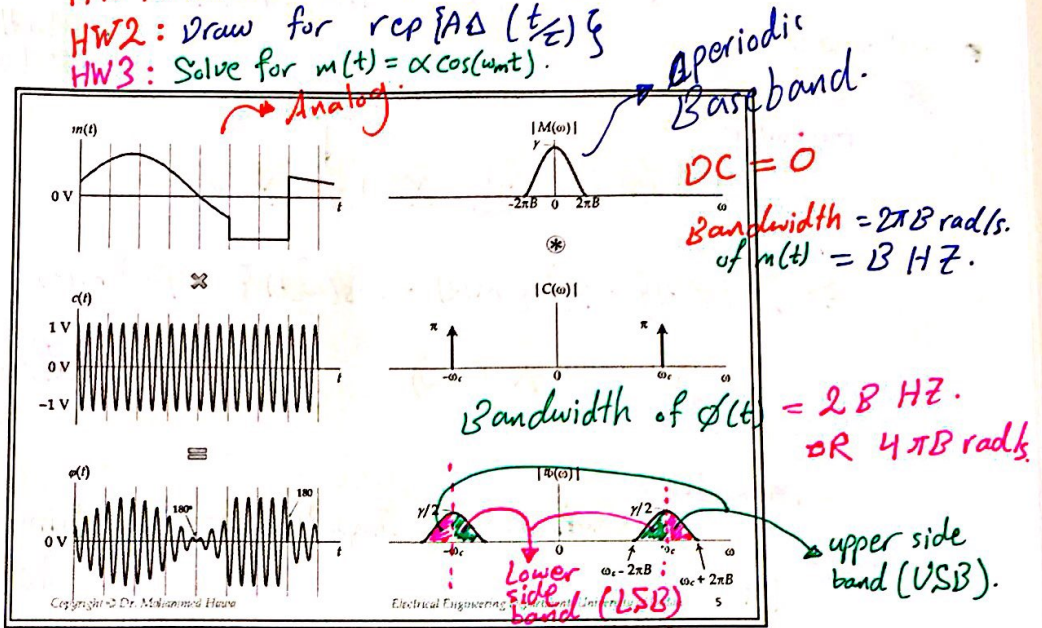 HW2: Draw for rep {AΔ (t/τ)}
HW3: Solve for m(t) = αcos(ωmt).
Analog.
Aperiodic
Baseband.
DC = 0
Bandwidth = 2πB rad/s.
of m(t) = B HZ.
m(t)
0 V
t
|M(ω)|
γ
-2πB 0 2πB
ω
×
*
c(t)
1 V
0 V
-1 V
t
|C(ω)|
π π
-ωc 0 ωc
ω
Bandwidth of φ(t) = 2B HZ.
OR 4πB rad/s
=
φ(t)
180°
180
0 V
t
|Φ(ω)|
γ/2 γ/2
-ωc 0 ωc
ω
ωc - 2πB ωc + 2πB
Lower
side
band (LSB)
upper side
band (USB).
Copyright © Dr. Mohammed Hawa
Electrical Engineering
5